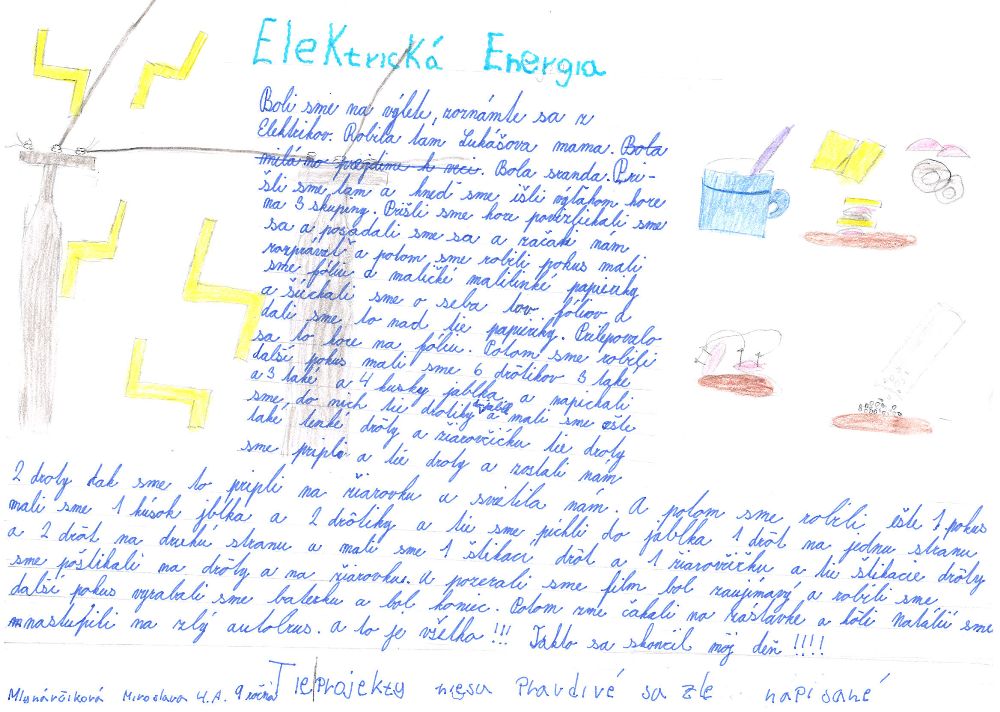 Elektrická Energia
Boli sme na výlete, zoznámte sa z
Elektrikov. Robila tam Lukášova mama. Bola
milá no prejdime k veci. Bola sranda. Pri-
šli sme tam a hneď sme išli výťahom hore
na 3 skupiny. Prišli sme hore povzliekali sme
sa a posadali sme sa a začali nám
rozprávať a potom sme robili pokus mali
sme fóliu a maličké malilinké papieriky
a šúchali sme o seba tov fóliov a
dali sme to nad tie papieriky. Prilepovalo
sa to hore na fóliu. Potom sme robili
ďalší pokus mali sme 6 drôtikov 3 také
a 3 také a 4 kusky jablka a napichali
sme do nich tie drotiky a mali sme ešte
také tenké drôty a žiarovčičku tie droty
sme pripli a tie droty a zostali nám
2 droty tak sme to pripli na žiarovku a svietila nám. A potom sme robili ešte 1 pokus
mali sme 1 kúsok jblka a 2 drôtiky a tie sme pichli do jablka 1 drôt na jednu stranu
a 2 drôt na druhú stranu a mali sme 1 štikací drôt a 1 žiarovčičku a tie štikacie drôty
sme poštikali na drôty a na žiarovku. A pozerali sme film bol zaujímavý a robili sme
ďalší pokus vyrabali sme baterku a bol koniec. Potom sme čakali na zastávke a kôli Natálií sme
nastúpili na zlý autobus. a to je všetko !!! Takto sa skončil môj deň !!!!
Tieprojekty niesu pravdivé sa zle napisané
Mlynárčiková Miroslava 4.A. 9 ročná